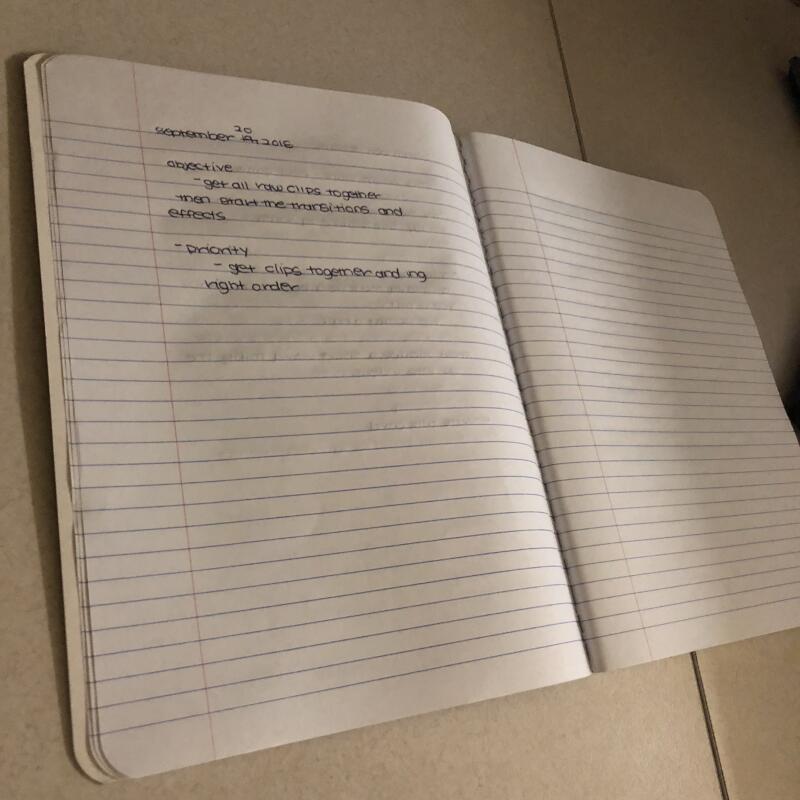 20
september 19, 2018
objective
- get all raw clips together
then start the transitions and
effects
- priority
- get clips together and ing
right order